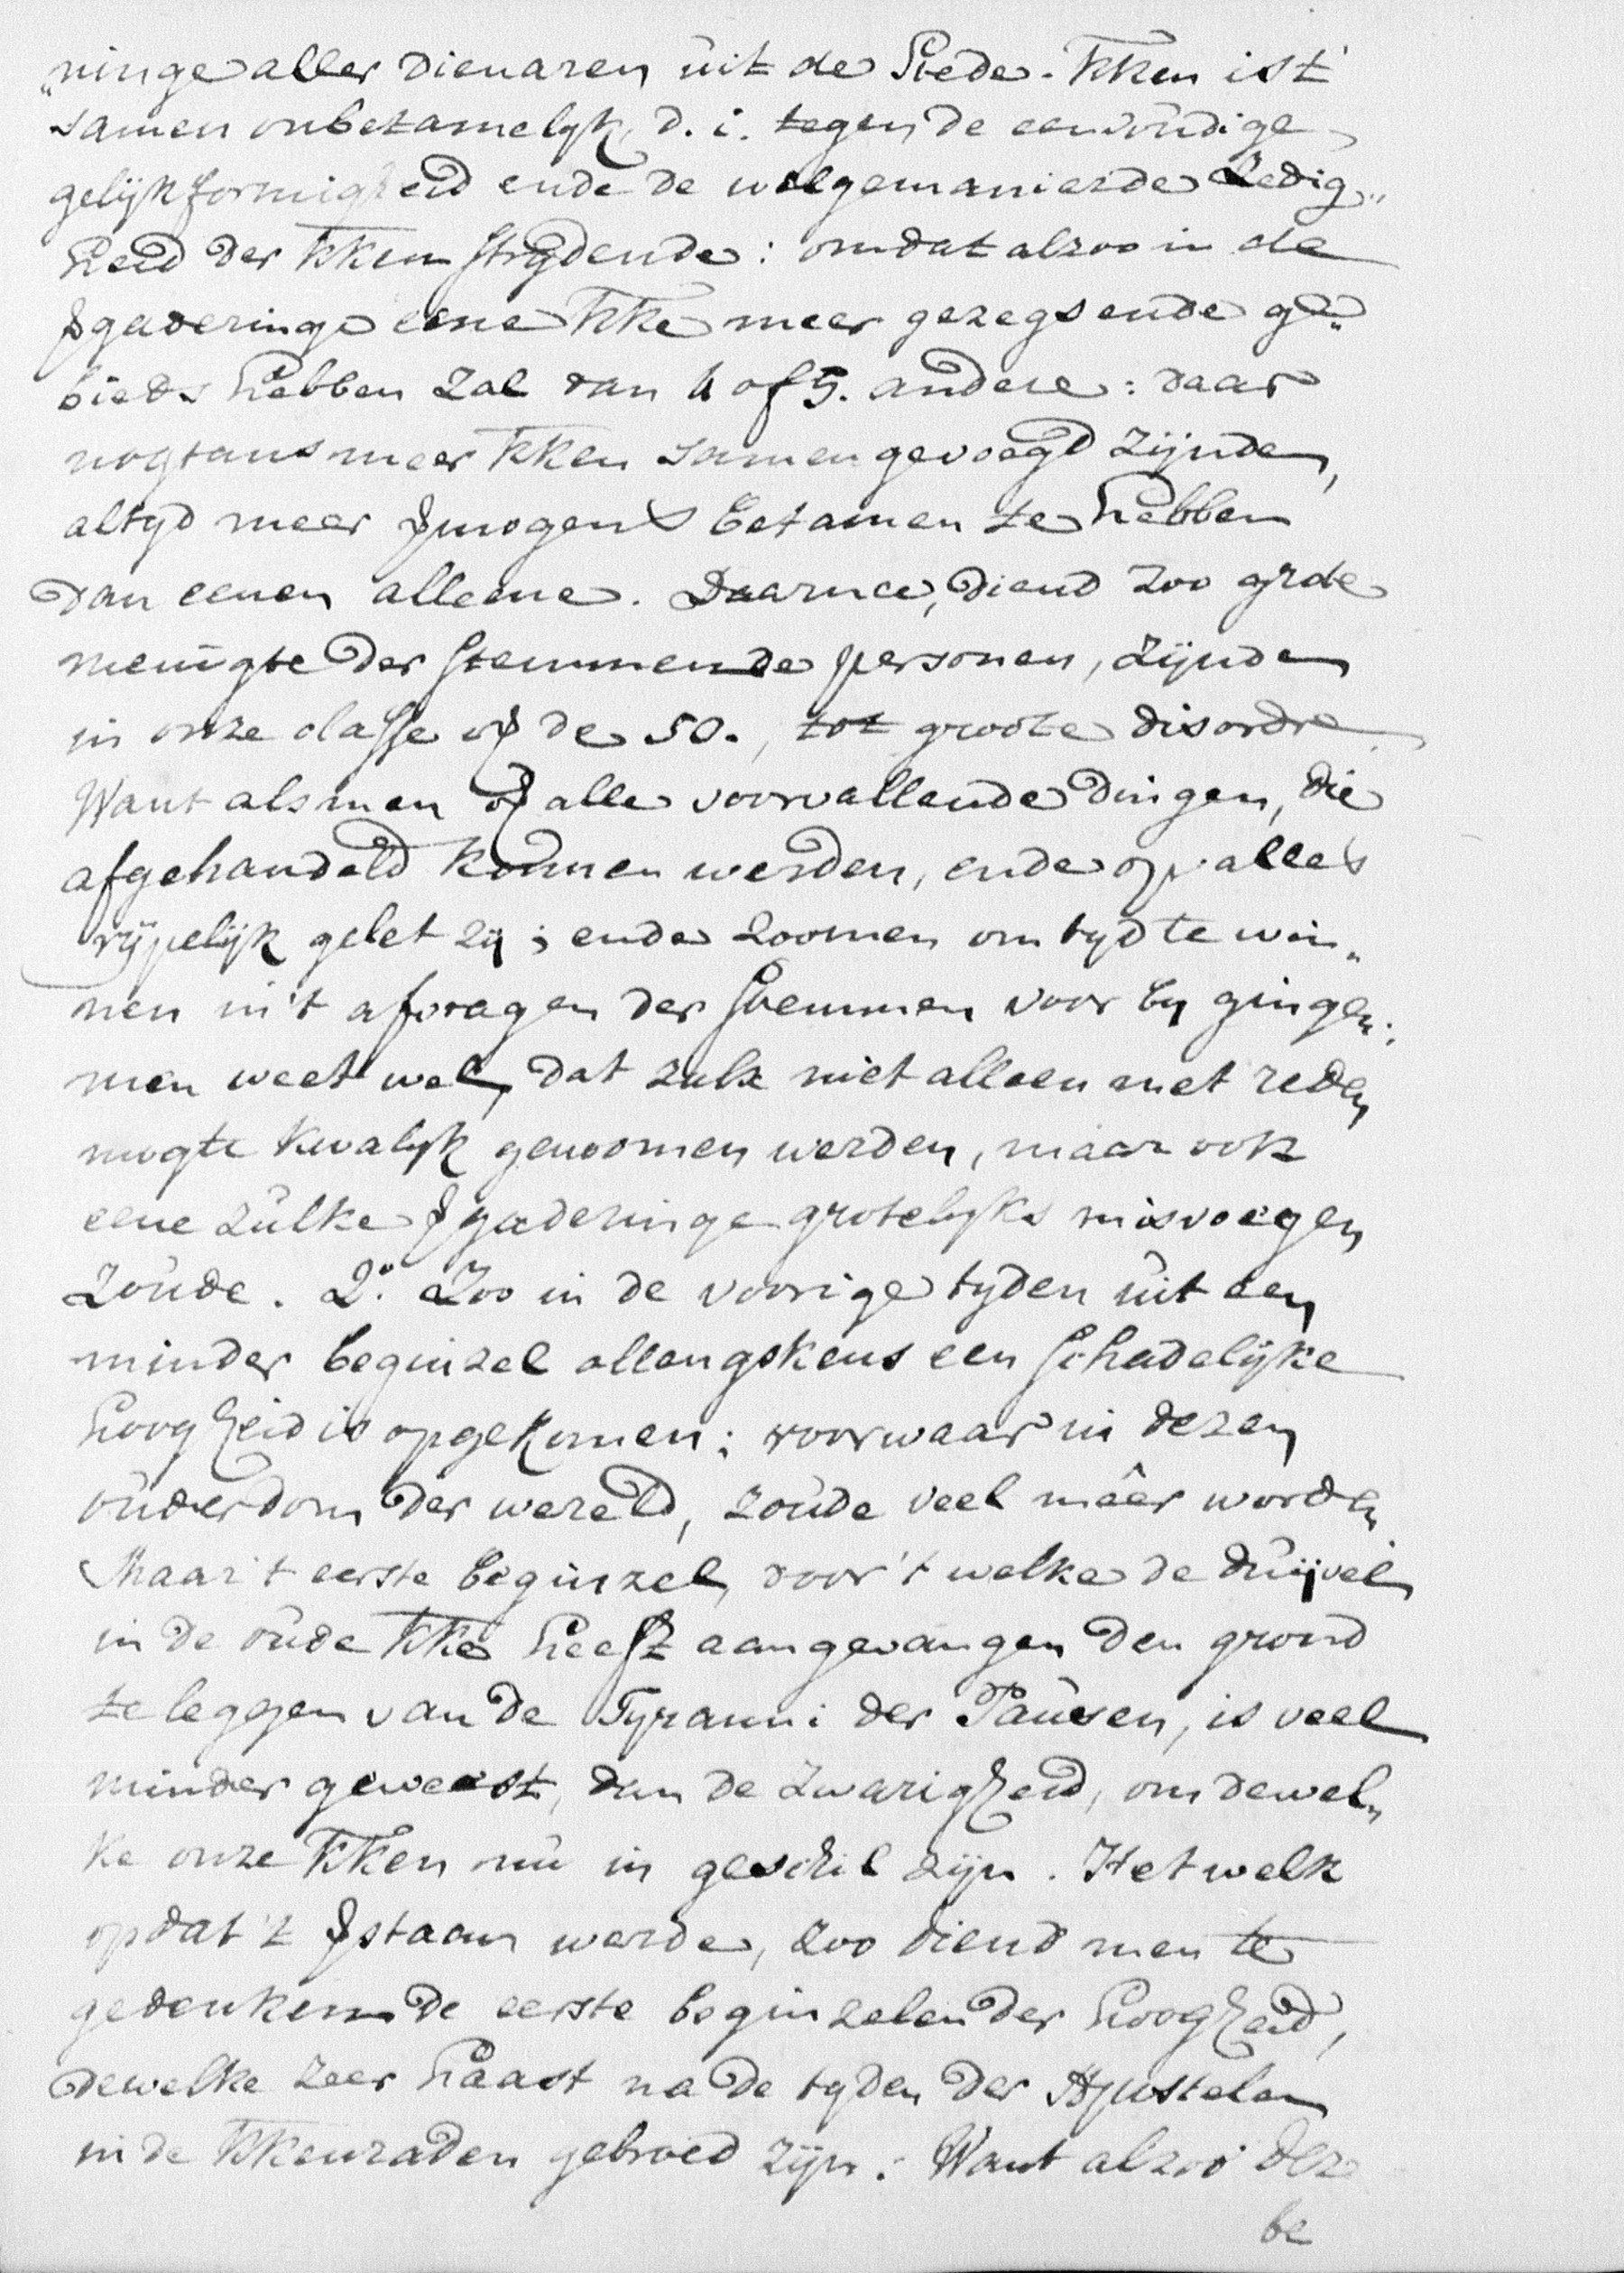 „ninge aller Dienaren uit de Stede. Kken is 't
samen onbetamelyk, d. i. tegen de eenvoudige
gelijkformigheid ende de welgemanierde Zedig„
heid der Kken strydende: omdat alzoo in de
vgaderinge eene Kke meer gezegs ende ge„
bieds hebben zal dan 4 of 5. andere: daar
nogtans meer Kken samengevoegd zijnde,
altyd meer vmogens betamen te hebben
dan eenen alleene. Daarna, diend zoo grote
menigte der stemmende personen, zijnde
in onze classe op de 50., tot groote disordre
Want als men op alle voorvallende dingen, die
afgehandeld konnen werden, ende op alles
rijpelijk gelet zij; ende zoo men om tyd te win„
nen in 't afvragen der stemmen voor by gingen:
men weet wel, dat zulx niet alleen met reden
mogte kwalyk genoomen werden, maar ook
eene zulke vgaderinge grotelyks misvoegen
zoude. 2.° Zoo in de voorige tyden uit een
minder beginzel allengskens een schadelijke
hoogheid is opgekomen: voorwaar in dezen
ouderdom der wereld, zoude veel mêer worden
Maar 't eerste beginzel, door 't welke de duijvel
in de oude Kke heeft aangevangen den grond
te leggen van de Tyranni der Pausen, is veel
minder geweest, dan de zwarigheid, om dewel„
ke onze Kken nu in geschil zijn. Het welk
opdat 't vstaan werde, zoo diend men te
gedenken de eerste beginzelen der hoogheid,
dewelke zeer haast na de tyden der Apostelen
in de Kkenraden gebroed zijn. Want alzoo dez
be